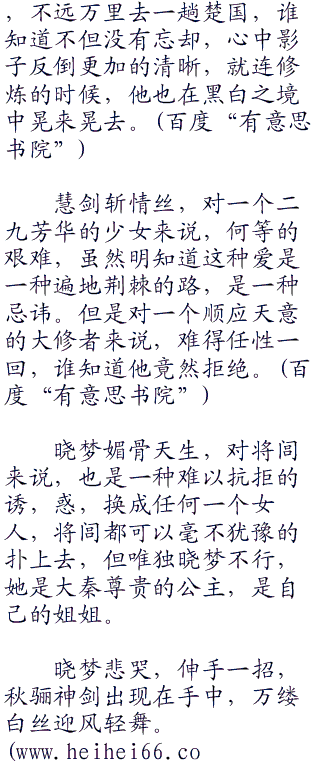 ，不远万里去一趟楚国，谁
知道不但没有忘却，心中影
子反倒更加的清晰，就连修
炼的时候，他也在黑白之境
中晃来晃去。(百度“有意思
书院”)
慧剑斩情丝，对一个二
九芳华的少女来说，何等的
艰难，虽然明知道这种爱是
一种遍地荆棘的路，是一种
忌讳。但是对一个顺应天意
的大修者来说，难得任性一
回，谁知道他竟然拒绝。(百
度“有意思书院”)
晓梦媚骨天生，对将闾
来说，也是一种难以抗拒的
诱，惑，换成任何一个女
人，将闾都可以毫不犹豫的
扑上去，但唯独晓梦不行，
她是大秦尊贵的公主，是自
己的姐姐。
晓梦悲哭，伸手一招，
秋骊神剑出现在手中，万缕
白丝迎风轻舞。
(www.heihei66.co